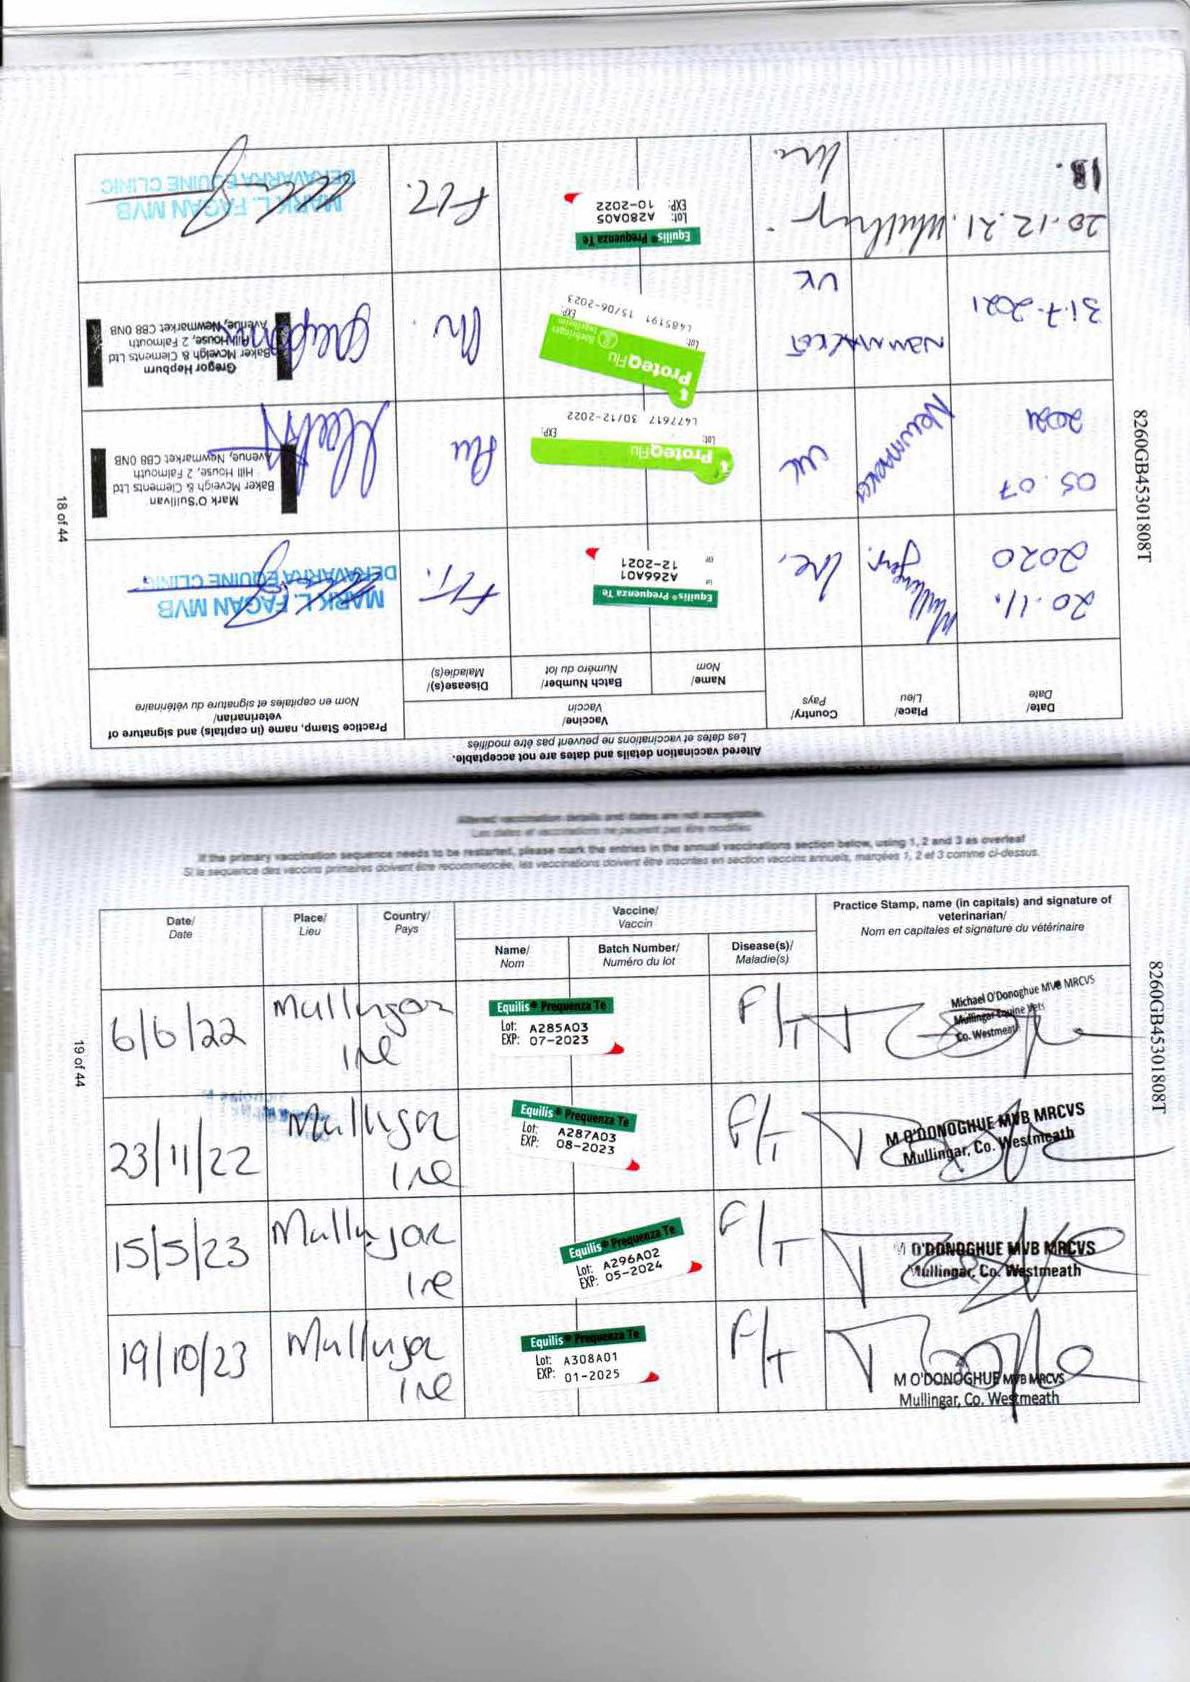 Altered vaccination details and dates are not acceptable.
Les dates et vaccinations ne peuvent pas être modifiés
Date/
Date
Place/
Lieu
Country/
Pays
Vaccine/
Vaccin
Name/
Nom
Batch Number/
Numéro du lot
Disease(s)/
Maladie(s)
Practice Stamp, name (in capitals) and signature of
veterinarian/
Nom en capitales et signature du vétérinaire
20.11.
2020
Mullingar.
Ire,
Equilis® Prequenza Te
A266A01
12-2021
F/T.
MARK L. FAGAN MVB
DERAVARRA EQUINE CLINIC
05.07
2021
Newmarket
UK
ProteqFlu
Lot:
EXP:
L477617 30/12-2022
Flu
Mark O'Sullivan
Baker Mcveigh & Clements Ltd
Hill House, 2 Falmouth
Avenue, Newmarket CB8 0NB
31.7.2021
NEWMARKET
UK
ProteqFlu
Boehringer
Ingelheim
Lot:
EXP:
L485191 15/06-2023
Gregor Hepburn
Baker Mcveigh & Clements Ltd
Hill House, 2 Falmouth
Avenue, Newmarket CB8 0NB
20.12.21.
Ire.
Equilis® Prequenza Te
Lot: A280A05
EXP: 10-2022
F/T.
MARK L. FAGAN MVB
DERAVARRA EQUINE CLINIC
18 of 44
8260GB45301808T
Altered vaccination details and dates are not acceptable.
Les dates et vaccinations ne peuvent pas être modifiés
If the primary vaccination sequence needs to be restarted, please mark the entries in the annual vaccinations section below, using 1, 2 and 3 as overleaf
Si la sequence des vaccins primaires doivent être recommencée, les vaccinations doivent être inscrites en section vaccins annuels, marquées 1, 2 et 3 comme ci-dessus.
Date/
Date
Place/
Lieu
Country/
Pays
Vaccine/
Vaccin
Name/
Nom
Batch Number/
Numéro du lot
Disease(s)/
Maladie(s)
Practice Stamp, name (in capitals) and signature of
veterinarian/
Nom en capitales et signature du vétérinaire
6/6/22
Mullingar
Ire
Equilis® Prequenza Te
Lot: A285A03
EXP: 07-2023
F/T
Michael O'Donoghue MVB MRCVS
Mullingar Equine Vets
Co. Westmeath
23/11/22
Mullingar
Ire
Equilis® Prequenza Te
Lot: A287A03
EXP: 08-2023
F/T
M O'DONOGHUE MVB MRCVS
Mullingar, Co. Westmeath
15/5/23
Mullingar
Ire
Equilis® Prequenza Te
Lot: A296A02
EXP: 05-2024
F/T
M O'DONOGHUE MVB MRCVS
Mullingar, Co. Westmeath
19/10/23
Mullingar
Ire
Equilis® Prequenza Te
Lot: A308A01
EXP: 01-2025
F/T
M O'DONOGHUE MVB MRCVS
Mullingar, Co. Westmeath
19 of 44
8260GB45301808T